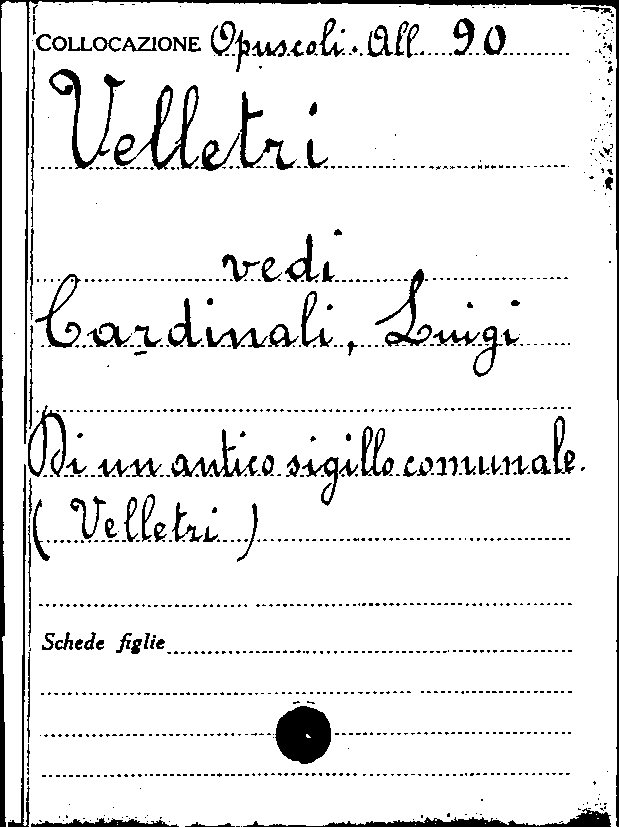 COLLOCAZIONE Opuscoli. All. 90
Velletri
vedi
Cardinali, Luigi
Di un antico sigillo comunale.
( Velletri )
Schede figlie